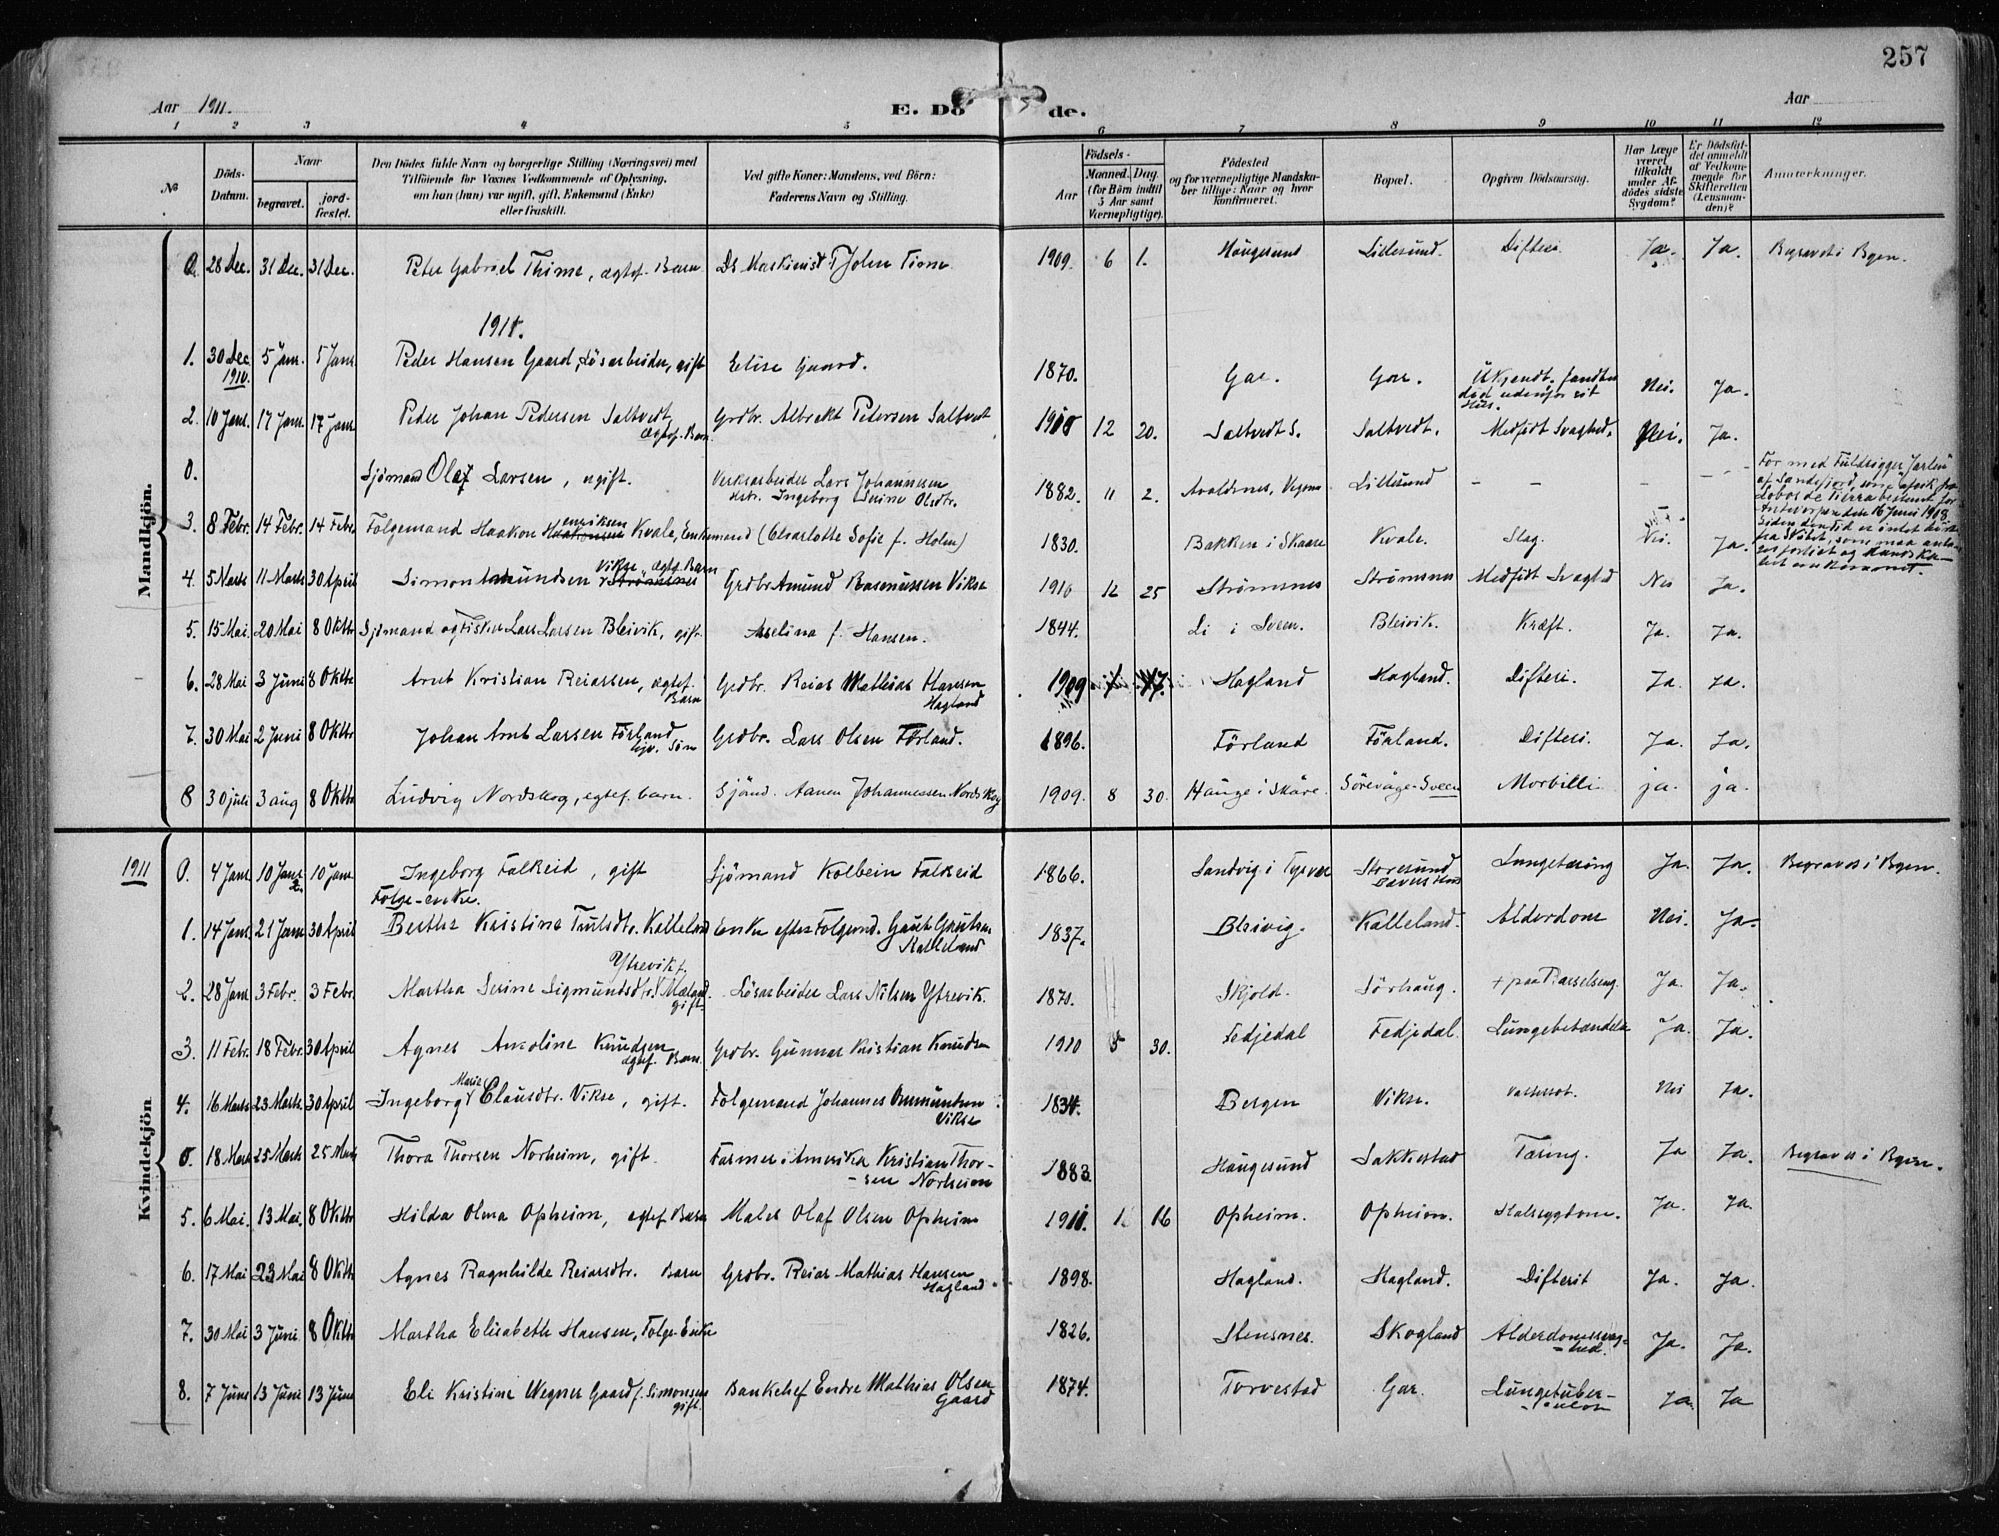 257
Aar 1911.
E. Dö de.
Aar
1 2 3 4 5 6 7 8 9 10 11 12
№
Döds-Datum.
Naar
begravet.
jord-fæstet.
Den Dödes fulde Navn og borgerlige Stilling (Næringsvei) med
Tilföiende for Voxnes Vedkommende af Oplysning,
om han (hun) var ugift, gift, Enkemand (Enke)
eller fraskilt.
Ved gifte Koner: Mandens, ved Börn:
Faderens Navn og Stilling.
Födsels-
Aar
Maaned. Dag.
(for Börn indtil
5 Aar samt
Værnepligtige).
Födested
og for værnepligtige Mandska-
ber tillige: Naar og hvor
konfirmeret.
Bopæl.
Opgiven Dödsaarsag.
Har Læge
været
tilkaldt
under Af-
dödes sidste
Sygdom?
Er Dödsfal-
det anmeldt
af Vedkom-
mende for
Skifteretten
(Lensman-
den)?
Anmerkninger.
Mandkjön.
0. 28 Dec. 31 Dec. 31 Dec. Peter Gabriel Thime, ægtef. Barn Ds Maskinist John Time 1909. 6 1. Haugesund Lillesund Difteri Ja. Ja. Begravet i Byen.
1911.
1. 30 Dec. 1910. 5 Jan. 5 Jan. Peder Hansen Gaard, Løsarbeider, gift Elise Gaard. 1870. Gar. Gar. Ukjendt. fandtes død udenfor sit Hus. Nei. Ja.
2. 10 Jan. 17 Jan. 17 Jan. Peder Johan Pedersen Saltvedt ægtef. Barn. Grdbr. Albrekt Pedersen Saltvedt 1910 12 20. Saltvedt S. Saltvedt. Medfødt Svaghed. Nei. Ja.
0. Sjømand Olaf Larsen, ugift. Verksarbeider Lars Johannesen Ingeborg Serine Olsdtr. 1882. 11 2. Avaldsnes, Lillesund – – – – For med Fuldrigger "Jarlen" af Sandefjord, som afgik fra Lobos de Tierra bestemt for Antwerpen den 16 Juni 1908. Siden den tid er intet hørt fra Skibet, som maa antages forlist og Mandskabet omkommet.
3. 8 Febr. 14 Febr. 14 Febr. Følgemand Haakon Henriksen Kvale, Enkemand (Charlotte Sofie f. Holm) 1830. Bakken i Skaare Kvale. Slag. Nei. Ja.
4. 5 Marts 11 Marts 30 April Simon Amundsen Vikse, ægtef. Barn Strømsnes Grdbr. Amund Rasmussen Vikse 1910 12 25 Strømsnes Strømsnes Medfødt Svaghed Nei Ja.
5. 15 Mai. 20 Mai 8 Oktbr Sjømand og Fisker Lars Larsen Bleivik, gift. Aselina f. Hansen. 1844. Li i Sveen. Bleivik. Kræft. Ja. Ja.
6. 28 Mai 3 Juni 8 Oktbr Arnt Kristian Reiarsen, ægtef. Barn Grdbr. Reiar Mathias Hansen Hagland 1909 Hagland Hagland. Difteri. Ja. Ja.
7. 30 Mai 2 Juni 8 Oktbr Johan Arnt Larsen Førland Søn Grdbr. Lars Olsen Førland. 1896. Førland Førland. Difteri. Ja. Ja.
8 30 juli 3 aug 8 Oktbr Ludvig Nordskog, egtef. barn. Sjømd. Aanen Johannessen Nordskog 1909. 8 30. Hauge i Skåre. Sørevåge - Sveen Morbilli ja. ja.
Kvindekjön
1911 0. 4 Jan 10 Jan. 10 Jan Ingeborg Falkeid, gift Sjømand Kolbein Falkeid 1866. Sandvig i Tysvær Storesund Lungetæring Ja. Ja. Begravet i Byen.
1. 14 Jan. 21 Jan. 30 April Følge-enke. Berthe Kristine Trulsdtr. Kalleland Enke efter Følgemd. Gaut Gautsen Kalleland 1837. Bleivig. Kalleland. Alderdom Nei Ja.
2. 28 Jan 3 Febr. 3 Febr. Martha Serine Sigmundsdtr. Ytrevik f. Mæland. gift Løsarbeider Lars Nilsen Ytrevik. 1871. Skjold. Sørhaug. + paa Barselseng. Ja. Ja.
3. 11 Febr. 18 Febr. 30 April Agnes Antoline Knudsen ægtef. Barn. Grdbr. Gunnar Kristian Knudsen 1910 5 30. Fedjedal Fedjedal. Lungebetændelse Ja. Ja.
4. 16 Marts 23 Marts 30 April Ingeborg Marie Clausdtr. Vikse, gift. Følgemand Johannes Ommundsen Vikse 1834. Bergen Vikse. Vattersot. Nei Ja.
0. 18 Marts 25 Marts 25 Marts Thora Thorsen Norheim, gift. Farmer i Amerika Kristian Thorsen Norheim 1883. Haugesund Sakkestad Tæring. Ja Ja. Begravet i Byen.
5. 6 Mai. 13 Mai. 8 Oktbr Hilda Olma Opheim, ægtef. Barn Maler Olaf Olsen Opheim 1911. 16 Opheim. Opheim. Halssygdom. Ja. Ja.
6. 17 Mai 23 Mai 8 Oktbr Agnes Ragnhilde Reiarsdtr. Barn Grdbr. Reiar Mathias Hansen Hagland. 1898. Hagland. Hagland. Difterit Ja. Ja.
7. 30 Mai 3 Juni 8 Oktbr Martha Elisabeth Hansen, Følge-Enke 1826. Stensnes. Skogland Alderdomssvaghed. Ja. Ja.
8. 7 Juni 13 Juni 13 Juni Eli Kristine Wegner Gaard f. Simonsen gift. Bankchef Endre Mathias Olsen Gaard 1874. Torvestad Gar. Lungetuberculose Ja. Ja